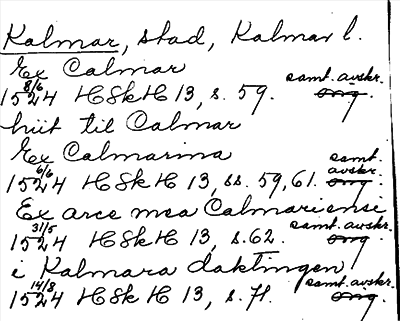 Kalmar, stad, Kalmar l.
Ex Calmar
1524 8/6 HSkH 13, s. 59. samt. avskr. orig.
hiit til Calmar
Ex Calmarina
1524 6/6 HSkH 13, ss. 59, 61. samt. avskr. orig.
Ex arce mea Calmariensi
1524 31/5 HSkH 13, s. 62. samt. avskr. orig.
i Kalmara daktingen
1524 14/8 HSkH 13, s. 71. samt. avskr. orig.